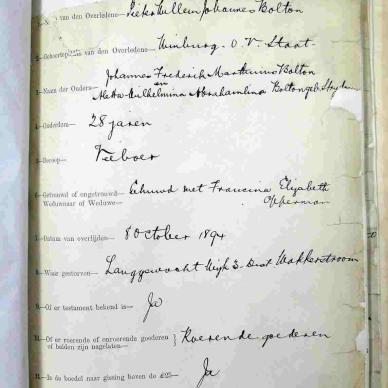 van den Overledene— Pieter Willem Johannes Bolton
2.—Geboorteplaats van den Overledene— Winburg. O. V. Staat.
3.—Naam der Ouders— Johannes Frederik Marthinus Bolton
en
Aletta Wilhelmina Abrahamlina Bolton geb.
4.—Ouderdom— 28 jaren
5.—Beroep— Veeboer
6.—Getrouwd of ongetrouwd— Gehuwd met Francina Elizabeth
Weduwnaar of Weduwe— Opperman
7.—Datum van overlijden— 8 October 1894
8.—Waar gestorven— Langgewacht Wijk 3. Dist Wakkerstroom
9.—Of er testament bekend is— Ja
10.—Of er roerende of onroerende goederen } Roerende goederen
of beiden zijn nagelaten—
11.—Is de boedel naar gissing boven de £25— Ja